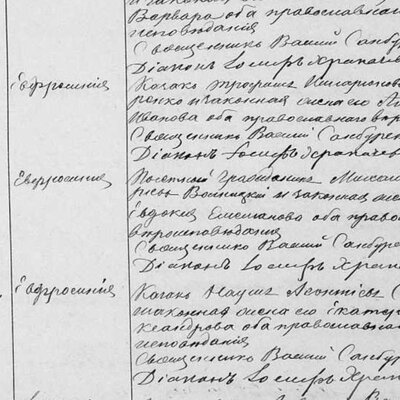 Варвара оба православнаго
исповѣданія
Священникъ Василій Санбур
Діаконъ Іосифъ Храпаче
Евфросинія
Казакъ Трофимъ
и законная жена его
Иванова оба православнаго
Священникъ Василій Санбурен
Діаконъ Іосифъ Храпачев
Евфросинія
Почетный Гражданинъ Михаи
Войницкій и законная же
Евдокія Емельянова оба право
вѣроисповѣданія
Священникъ Василій Санбуре
Діаконъ Іосифъ Храпа
Евфросинія
Казакъ Наумъ Леонтіевъ С
законная жена его Екатер
ксандрова оба православна
исповѣданія
Священникъ Василій Санбу
Діаконъ Іосифъ Храп